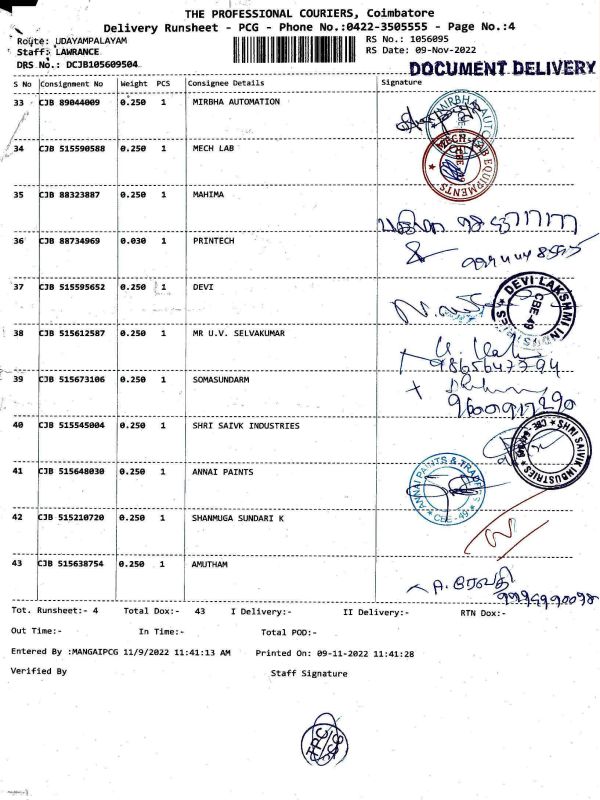 THE PROFESSIONAL COURIERS, Coimbatore
Delivery Runsheet - PCG - Phone No.:0422-3505555 - Page No.:4
Route: UDAYAMPALAYAM RS No.: 1056095
Staff: LAWRANCE RS Date: 09-Nov-2022
DRS No.: DCJB105609504 DOCUMENT DELIVERY
S No Consignment No Weight PCS Consignee Details Signature
33 CJB 89044009 0.250 1 MIRBHA AUTOMATION
34 CJB 515590588 0.250 1 MECH LAB
35 CJB 88323887 0.250 1 MAHIMA
36 CJB 88734969 0.030 1 PRINTECH
37 CJB 515595652 0.250 1 DEVI
DEVI LAKSHMI INDUSTRIES CBE-49
38 CJB 515612587 0.250 1 MR U.V. SELVAKUMAR
9865647794
39 CJB 515673106 0.250 1 SOMASUNDARM
40 CJB 515545004 0.250 1 SHRI SAIVK INDUSTRIES
SHRI SAIVIK INDUSTRIES
41 CJB 515648030 0.250 1 ANNAI PAINTS
ANNAI PAINTS & TRADERS CBE-49
42 CJB 515210720 0.250 1 SHANMUGA SUNDARI K
43 CJB 515638754 0.250 1 AMUTHAM
A. ரேவதி
Tot. Runsheet:- 4 Total Dox:- 43 I Delivery:- II Delivery:- RTN Dox:-
Out Time:- In Time:- Total POD:-
Entered By :MANGAIPCG 11/9/2022 11:41:13 AM Printed On: 09-11-2022 11:41:28
Verified By Staff Signature
TPC